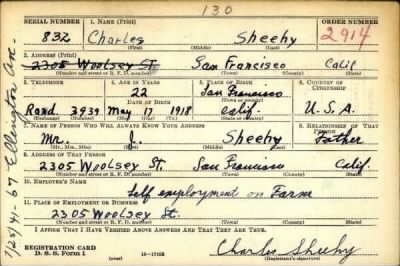 130
SERIAL NUMBER 1. NAME (Print) ORDER NUMBER
832 Charles Sheehy 2914
(First) (Middle) (Last)
2. ADDRESS (Print)
2305 Woolsey St. San Francisco Calif
(Number and street or R. F. D. number) (Town) (County) (State)
3. TELEPHONE 4. AGE IN YEARS 5. PLACE OF BIRTH 6. COUNTRY OF CITIZENSHIP
22 San Francisco
DATE OF BIRTH (Town or county)
Rand. 3939 May 17 1918 Calif. U.S.A.
(Exchange) (Number) (Mo.) (Day) (Yr.) (State or country)
7. NAME OF PERSON WHO WILL ALWAYS KNOW YOUR ADDRESS 8. RELATIONSHIP OF THAT PERSON
Mr. J. Sheehy Father
(Mr., Mrs., Miss) (First) (Middle) (Last)
9. ADDRESS OF THAT PERSON
2305 Woolsey St. San Francisco Calif.
(Number and street or R. F. D. number) (Town) (County) (State)
10. EMPLOYER'S NAME
Self employment on Farm
11. PLACE OF EMPLOYMENT OR BUSINESS
2305 Woolsey St.
(Number and street or R. F. D. number) (Town) (County) (State)
I AFFIRM THAT I HAVE VERIFIED ABOVE ANSWERS AND THAT THEY ARE TRUE.
REGISTRATION CARD
D. S. S. Form 1 16-17105 Charles Sheehy
(over) (Registrant's signature)
7/25/41 - 67 Ellington Ave.